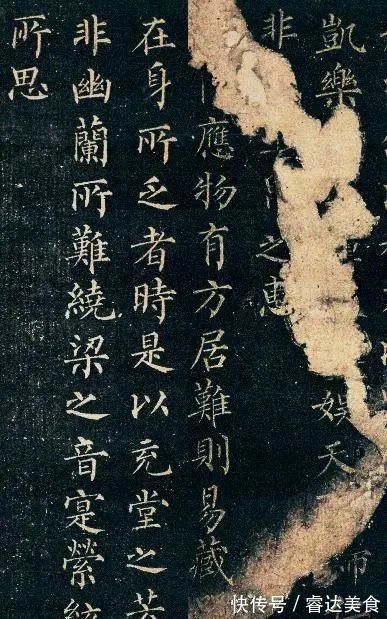 凱樂娛天
非之惠
應物有方居難則易藏
在身所乏者時是以充堂之
非幽蘭所難繞梁之音寔縈
所思
快传号/睿达美食